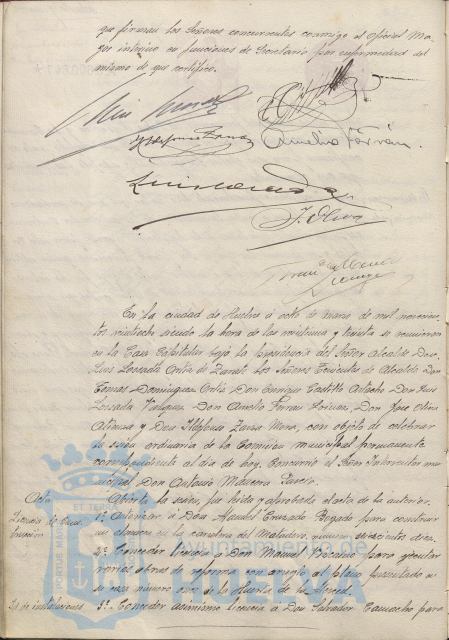 que firman los Señores concurrentes conmigo el Oficial Ma-
yor interino en funciones de Secretario por enfermedad del
mismo de que certifico.
Aurelio Farrán.
J. Oliva
En la ciudad de Huelva á ocho de Marzo de mil novecien-
tos veintiocho siendo la hora de las veintiuna y treinta se reunieron
en la Casa Capitular bajo la Presidencia del Señor Alcalde Don
Luis Lossada Ortiz de Zarate los Señores Tenientes de Alcalde Don
Tomas Dominguez Ortiz Don Enrique Castillo Don Luis
Lossada Vazquez Don Aurelio Farran Don Jose Oliva
Atienza y Don Ildefonso Zarza Mora, con objeto de celebrar
la sesion ordinaria de la Comision municipal permanente
correspondiente al dia de hoy. Concurrió el Señor Interventor mu-
nicipal Don Antonio Garcia.
Acta
Abierta la sesion, fue leida y aprobada el acta de la anterior.
Licencia de Cons-
trucción
1º Autorizar á Don Manuel Cruzado para construir
un almacen en la carretera del Matadero, numero diez.
2º Conceder licencia á Don Manuel Vizcaino para ejecutar
varias obras de reforma con arreglo al plano presentado en
su casa número once de la Huerta de la Merced.
Id de instalaciones
3º Conceder asimismo licencia á Don Salvador Camacho para
ET TERRAE
PORTUS MARIS
Ayuntamiento de
HUELVA